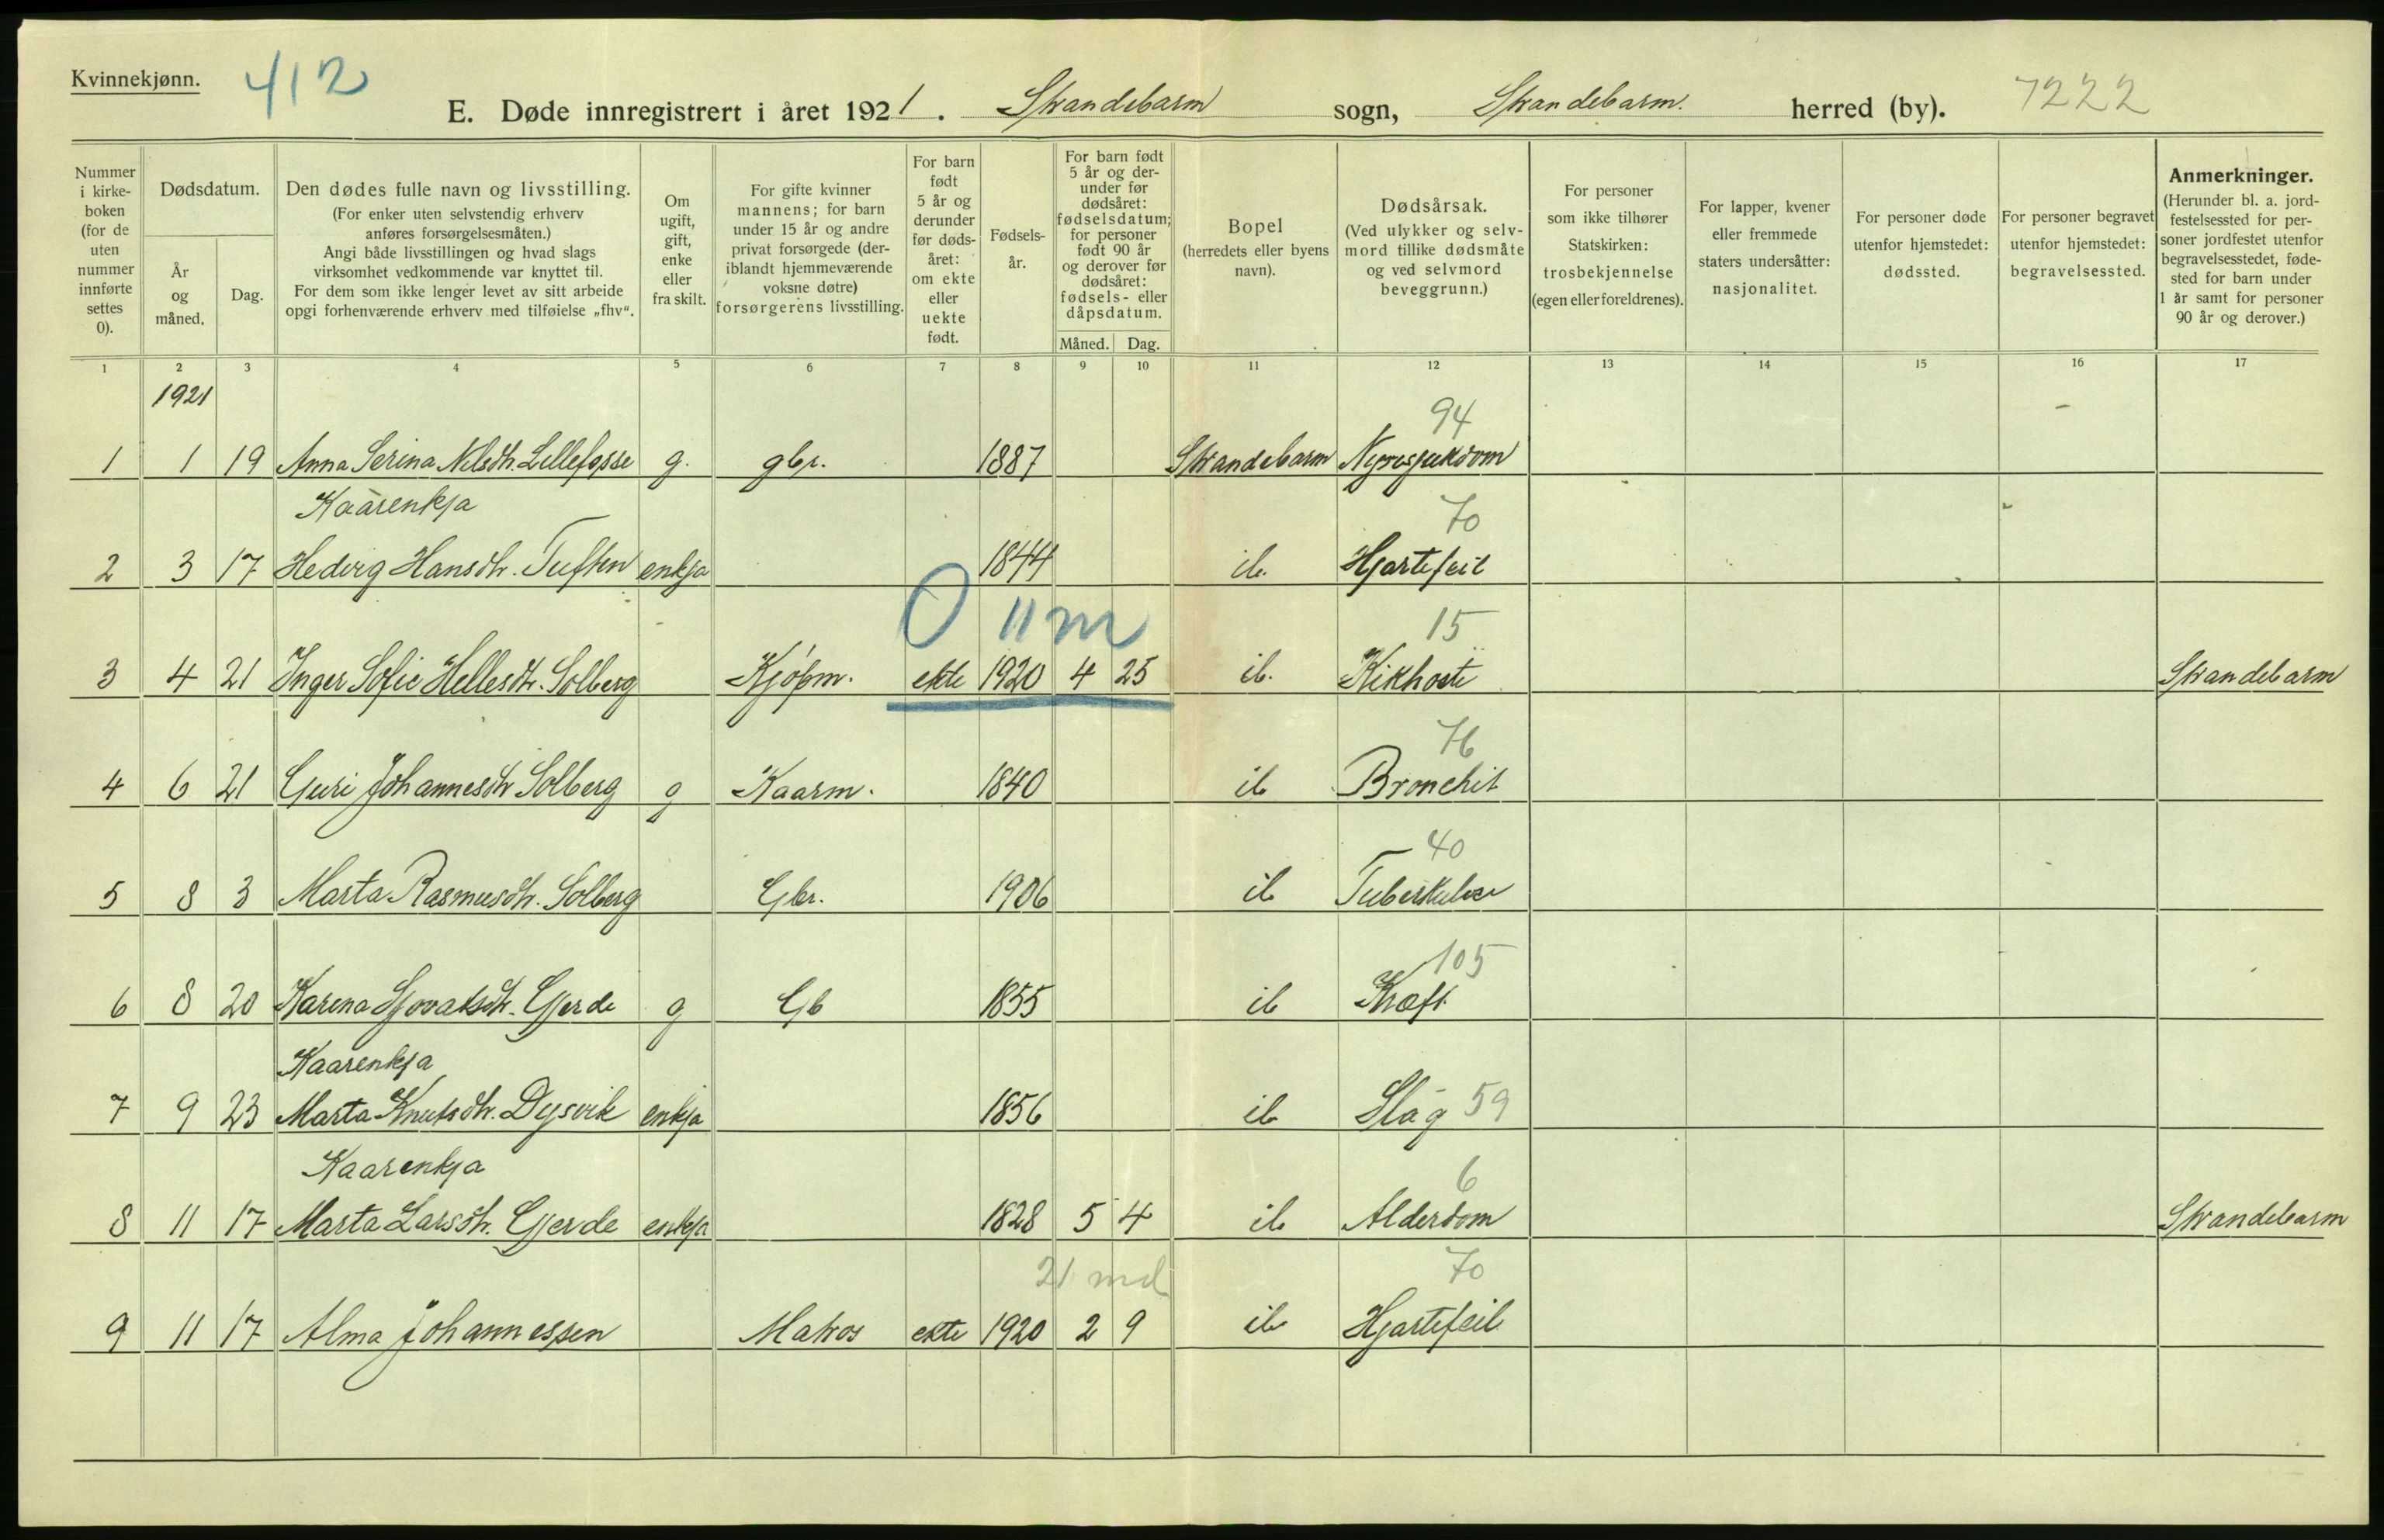 Kvinnekjønn. 412
E. Døde innregistrert i året 1921. Strandebarm sogn, Strandebarm. herred (by). 7222
Nummer i kirke- boken (for de uten nummer innførte settes 0).
Dødsdatum.
År og måned.
Dag.
Den dødes fulle navn og livsstilling.
(For enker uten selvstendig erhverv
anføres forsørgelsesmåten.)
Angi både livsstillingen og hvad slags
virksomhet vedkommende var knyttet til.
For dem som ikke lenger levet av sitt arbeide
opgi forhenværende erhverv med tilføielse „fhv“.
Om ugift, gift, enke eller fraskilt.
For gifte kvinner
mannens; for barn
under 15 år og andre
privat forsørgede (der-
iblandt hjemmeværende
voksne døtre)
forsørgerens livsstilling.
For barn født 5 år og derunder før døds- året: om ekte eller uekte født.
Fødsels- år.
For barn født
5 år og der-
under før
dødsåret:
fødselsdatum;
for personer
født 90 år
og derover før
dødsåret:
fødsels- eller
dåpsdatum.
Måned. Dag.
Bopel
(herredets eller byens
navn).
Dødsårsak.
(Ved ulykker og selv-
mord tillike dødsmåte
og ved selvmord
beveggrunn.)
For personer
som ikke tilhører
Statskirken:
trosbekjennelse
(egen eller foreldrenes).
For lapper, kvener
eller fremmede
staters undersåtter:
nasjonalitet.
For personer døde
utenfor hjemstedet:
dødssted.
For personer begravet
utenfor hjemstedet:
begravelsessted.
Anmerkninger.
(Herunder bl. a. jord-
festelsessted for per-
soner jordfestet utenfor
begravelsesstedet, føde-
sted for barn under
1 år samt for personer
90 år og derover.)
1 2 3 4 5 6 7 8 9 10 11 12 13 14 15 16 17
1921
94
1 1 19 Anna Serina Nilsdtr. Lillefosse g. gbr. 1887 Strandebarm Nyresjukdom
Kaarenkja 70
2 3 17 Hedvig Hansdtr. Tuften enkja 1844 ib. Hjartefeil
0 11 m 15
3 4 21 Inger Sofie Hellesdtr. Solberg Kjópm. ekte 1920 4 25 ib. Kikhoste Strandebarm
76
4 6 21 Guri Johannesdtr Solberg g Kaarm. 1840 ib Bronchit
40
5 8 3 Marta Rasmusdtr. Solberg Gbr. 1906 ib Tuberkulose
105
6 8 20 Karena Sjovatsdtr. Gjerde g Gb 1855 ib Kræft
Kaarenkja
7 9 23 Marta Knutsdtr. Dysvik enkja 1856 ib Slag 59
Kaarenkja 6
8 11 17 Marta Larsdtr. Gjerde enkja 1828 5 4 ib Alderdom Strandebarm
21 md 70
9 11 17 Alma Johannessen Matros ekte 1920 2 9 ib Hjartefeil